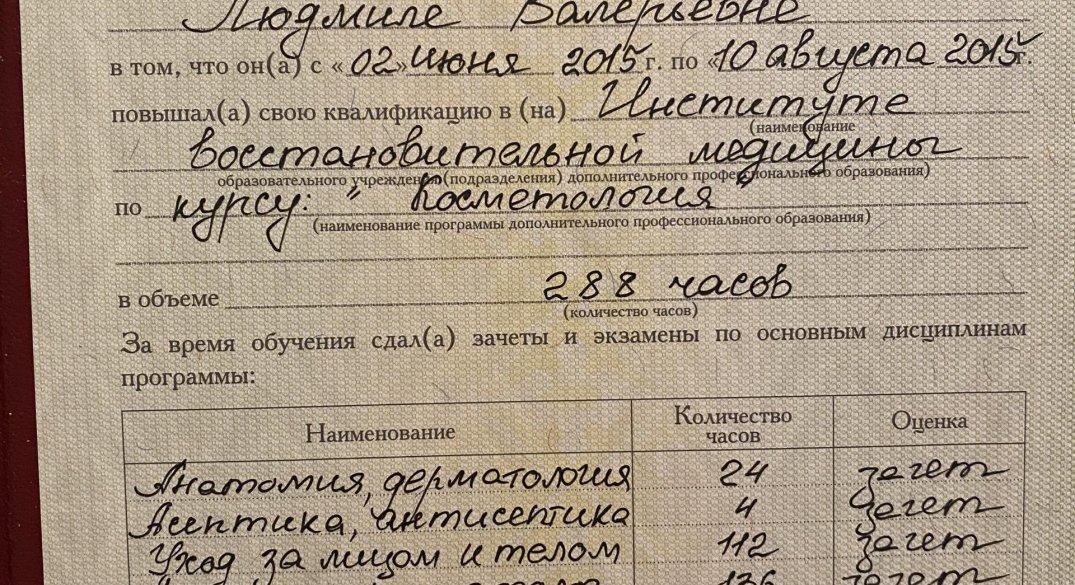 Людмиле Валерьевне
в том, что он(а) с «02» июня 2015 г. по «10 августа 2015 г.
повышал(а) свою квалификацию в (на) Институте
(наименование
восстановительной медицины
образовательного учреждения (подразделения) дополнительного профессионального образования)
по курсу: "Косметология"
(наименование программы дополнительного профессионального образования)
в объеме 288 часов
(количество часов)
За время обучения сдал(а) зачеты и экзамены по основным дисциплинам
программы:
Наименование Количество часов Оценка
Анатомия, дерматология 24 зачет
Асептика, антисептика 4 зачет
Уход за лицом и телом 112 зачет
136 зачет